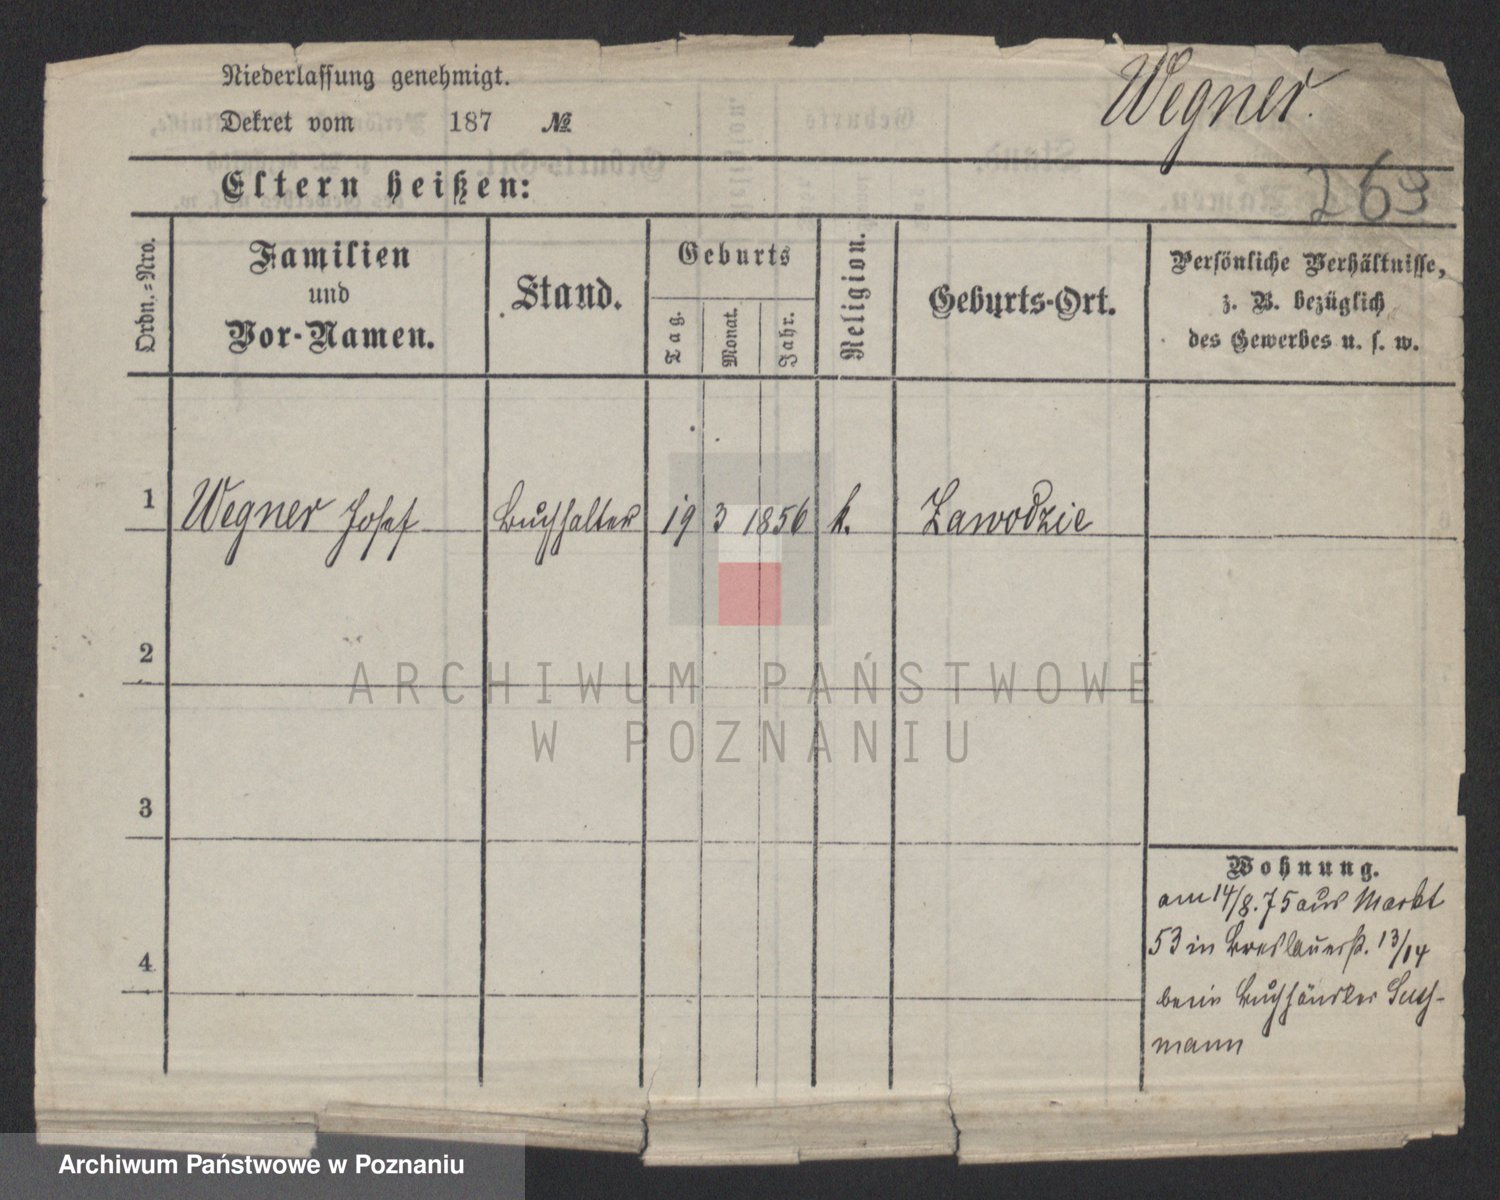 Niederlassung genehmigt.
Dekret vom 187 №
Wegner.
Eltern heißen:
263
Ordn.=Nro.
Familien
und
Vor-Namen.
Stand.
Geburts
Tag.
Monat.
Jahr.
Religion.
Geburts-Ort.
Persönliche Verhältnisse,
z. B. bezüglich
des Gewerbes u. s. w.
1 Wegner Josef Buchhalter 19 3 1856 k. Zawodzie
2
3
4
Wohnung.
am 14/8.75 aus Markt
53 in Breslauerst. 13/14
beim Buchhändler
mann
ARCHIWUM PAŃSTWOWE
W POZNANIU
Archiwum Państwowe w Poznaniu